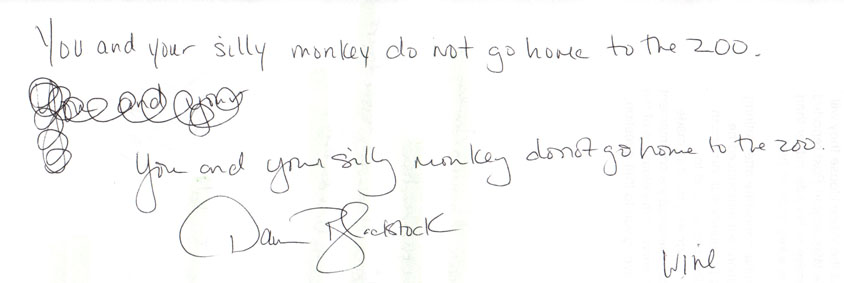 You and your silly monkey do not go home to the zoo.
You and your
You and your silly monkey do not go home to the zoo.
Dan Blackstock
Wine